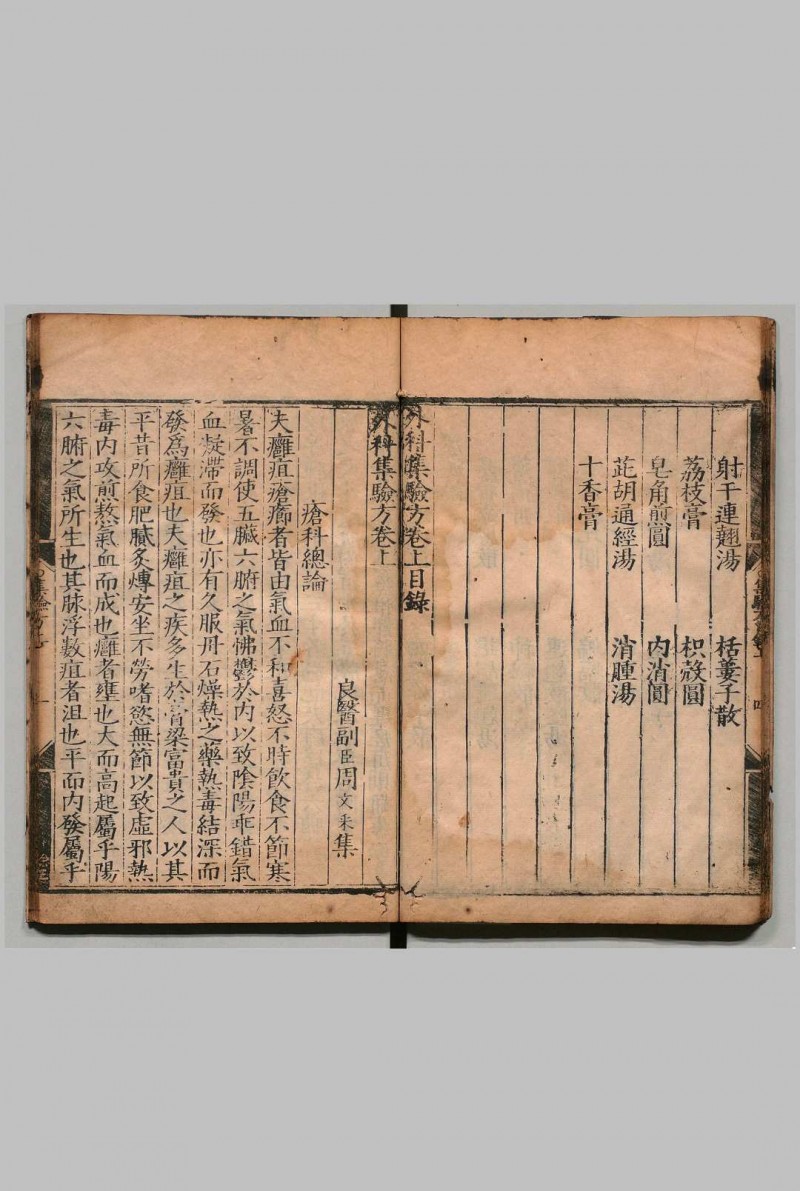 射干連翹湯 栝蔞子散
荔枝膏 枳殼圓
皂角煎圓 內消圓
茈胡通經湯 消腫湯
十香膏
外科集驗方卷上目錄
外科集驗方卷上
良醫副臣周文采集
瘡科總論
夫癰疽瘡癤者皆由氣血不和喜怒不時飲食不節寒
暑不調使五臟六腑之氣怫鬱於內以致陰陽乖錯氣
血凝滯而發也亦有久服丹石燥熱之藥熱毒結深而
發爲癰疽也夫癰疽之疾多生於膏粱富貴之人以其
平昔所食肥膩炙煿安坐不勞嗜慾無節以致虛邪熱
毒內攻煎熬氣血而成也癰者壅也大而高起屬乎陽
六腑之氣所生也其脉浮數疽者沮也平而內發屬乎